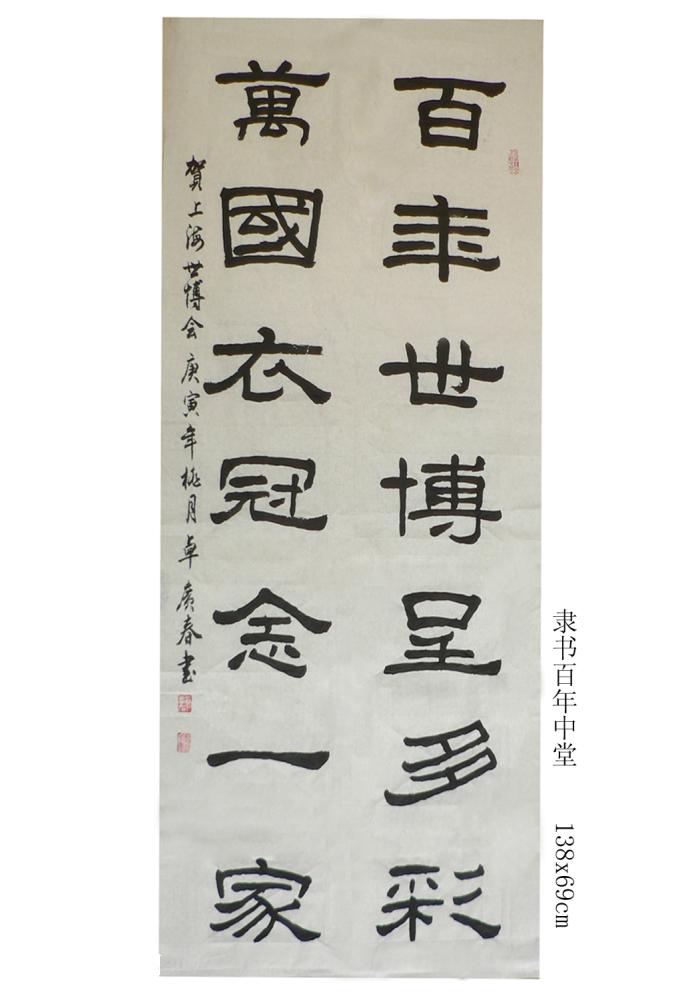 百年世博呈多彩
萬國衣冠念一家
賀上海世博会庚寅年桃月卓廣春书
隶书百年中堂 138x69cm